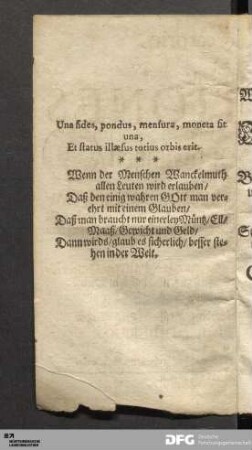 Una fides, pondus, mensura, moneta sit
una,
Et status illæsus totius orbis erit.
* * *
Wenn der Menschen Wanckelmuth
allen Leuten wird erlauben/
Daß den einig wahren GOtt man ver-
ehrt mit einem Glauben/
Daß man braucht nur einerley Müntz/Ell/
Maaß/Gewicht und Geld/
Dann wirds/glaub es sicherlich/besser ste-
hen in der Welt.
DFG